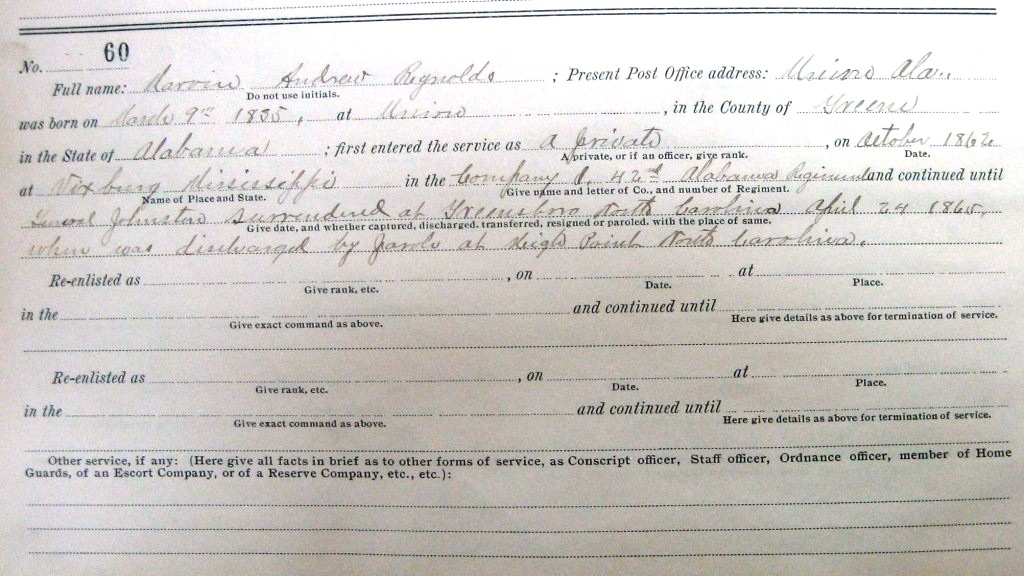 No. 60
Full name: Marvin Andrew Reynolds ; Present Post Office address: Union Ala.
Do not use initials.
was born on March 9th 1835, at Union , in the County of Greene
in the State of Alabama ; first entered the service as A private , on October 1862
A private, or if an officer, give rank. Date.
at Vixburg Mississippi in the Company C, 42nd Alabama Regiment and continued until
Name of Place and State. Give name and letter of Co., and number of Regiment.
General Johnston Surrendered at Greensboro North Carolina April 24 1865,
Give date, and whether captured, discharged, transferred, resigned or paroled, with the place of same.
when was discharged by Parole at High Point North Carolina.
Re-enlisted as , on at
Give rank, etc. Date. Place.
in the and continued until
Give exact command as above. Here give details as above for termination of service.
Re-enlisted as , on at
Give rank, etc. Date. Place.
in the and continued until
Give exact command as above. Here give details as above for termination of service.
Other service, if any: (Here give all facts in brief as to other forms of service, as Conscript officer, Staff officer, Ordnance officer, member of Home
Guards, of an Escort Company, or of a Reserve Company, etc., etc.):